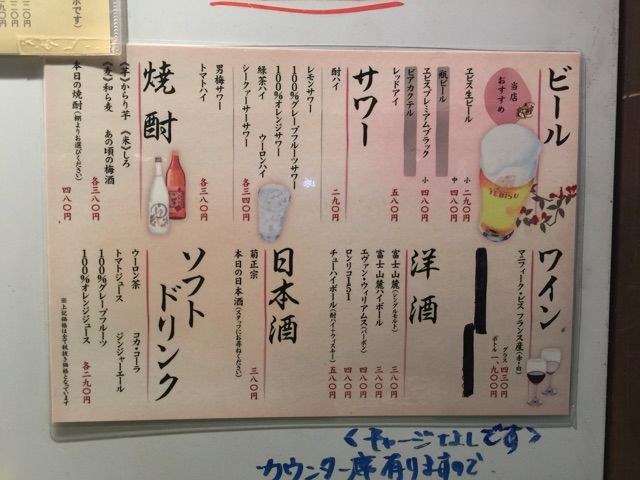 ビール
当店
おすすめ
ヱビス生ビール
小 二九〇円
中 四八〇円
瓶ビール
ヱビスプレミアムブラック
小 四八〇円
ビアカクテル
レッドアイ
五八〇円
YEBISU
サワー
酎ハイ
二九〇円
レモンサワー
100%グレープフルーツサワー
100%オレンジサワー
緑茶ハイ ウーロンハイ
シークァーサーサワー
各三四〇円
男梅サワー
トマトハイ
各三八〇円
焼酎
《芋》からり芋 《米》しろ
《麦》和ら麦 あの頃の梅酒
各三八〇円
本日の焼酎(棚よりお選びください)
四八〇円
ワイン
マニフィーク・ビス フランス産(赤・白)
グラス 四三〇円
ボトル 一、九〇〇円
洋酒
富士山麓(シングルモルト)
三八〇円
富士山麓ハイボール
三八〇円
エヴァン・ウィリアムス(バーボン)
四八〇円
ロンリコ151
四八〇円
チューハイボール(酎ハイ+ウィスキー)
五八〇円
日本酒
菊正宗
三八〇円
本日の日本酒(スタッフにお尋ねください)
ソフトドリンク
ウーロン茶 コカ・コーラ
トマトジュース ジンジャーエール
100%グレープフルーツ
100%オレンジジュース
各二九〇円
※上記価格は全て税抜き価格となっています
<チャージなしです>
カウンター席有りますので